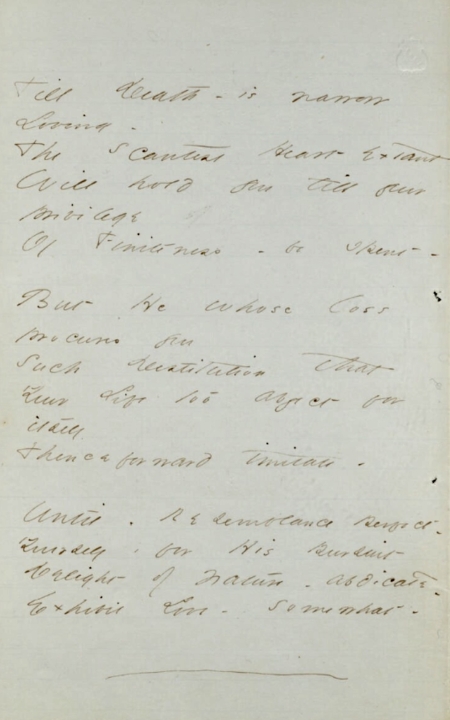 Till Death - is narrow
Loving -
The Scantest Heart extant
Will hold you till your
privilege
Of Finiteness - be spent -
But He whose loss
procures you
Such Destitution that
Your Life too abject for
itself
Thenceforward imitate -
Until - Resemblance perfect -
Yourself, for His pursuit
Delight of Nature - abdicate -
Exhibit Love - somewhat -